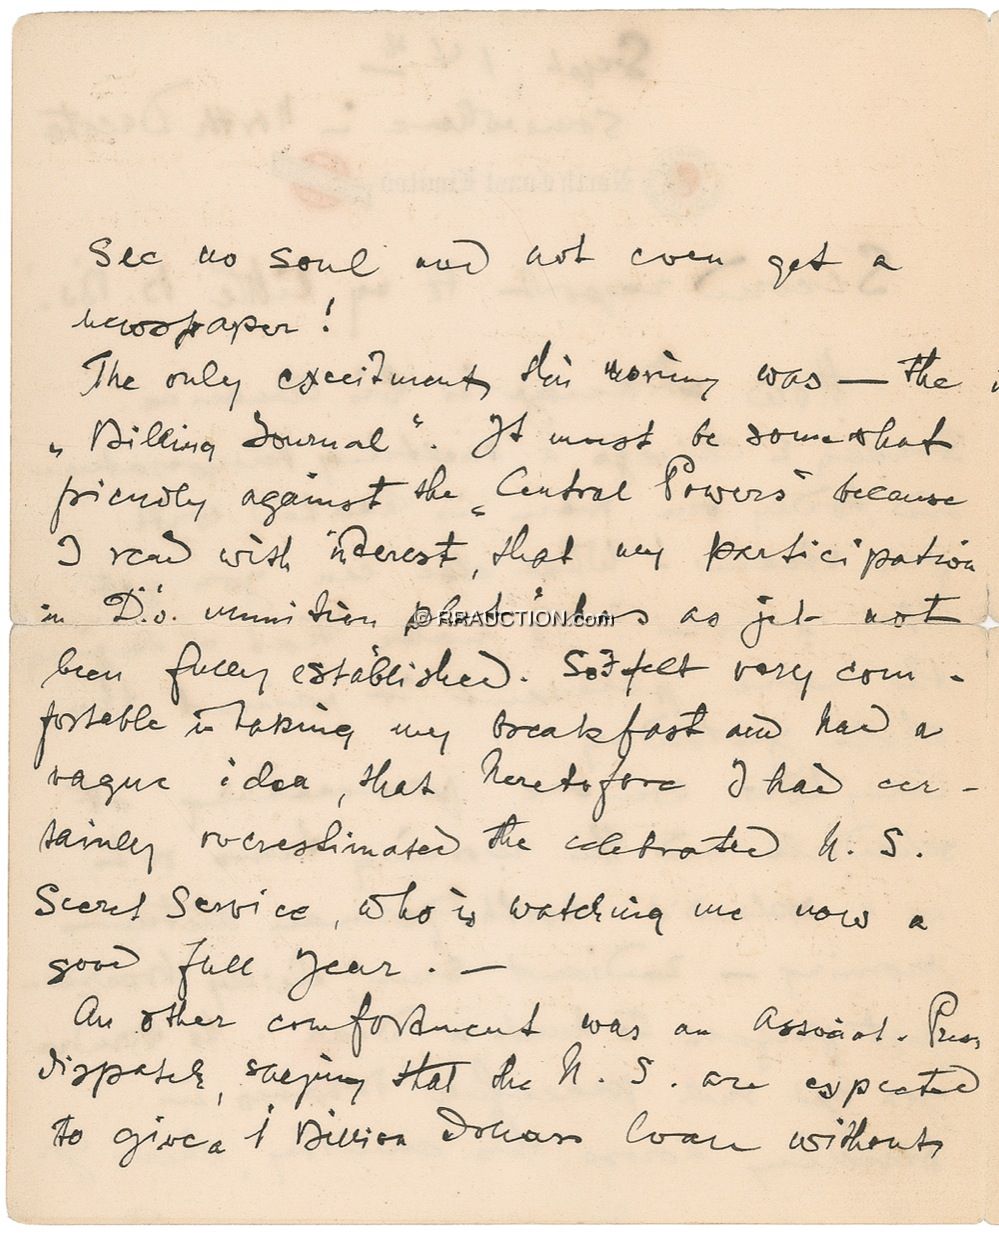 See no soul and not even get a
newspaper!
The only exceitment, this morning was — the
„Billing Journal“. It must be somewhat
friendly against the „Central Powers“ because
I read with interest, that my participation
in D. munition has as jet not
been fully established. So I felt very com-
fortable in taking my breakfast and had a
vague idea, that heretofore I had cer-
tainly overestimated the celebrated U. S.
Secret Service, who is watching me now a
good full year. —
An other comfortment was an Associat. Press
dispatch, saying that the U. S. are expected
to give a 1 Billion Dollars loan without,
© RRAUCTION.com